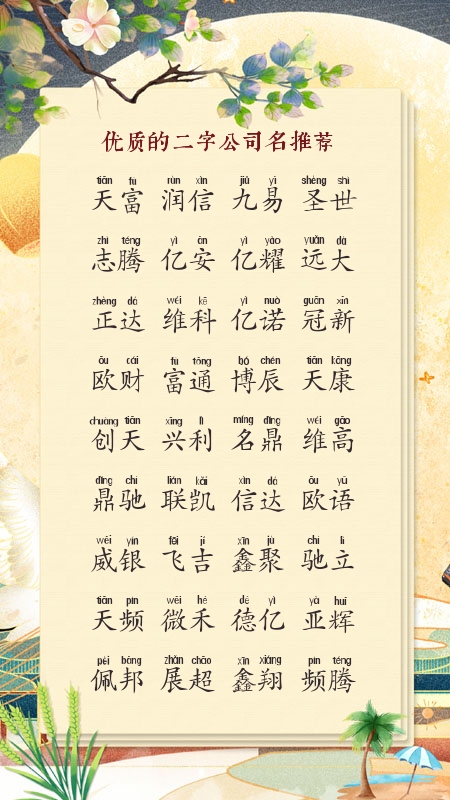 优质的二字公司名推荐
tiān fù rùn xìn jiǔ yì shèng shì
天富 润信 九易 圣世
zhì téng yì ān yì yào yuǎn dà
志腾 亿安 亿耀 远大
zhèng dá wéi kē yì nuò guān xīn
正达 维科 亿诺 冠新
ōu cái fù tōng bó chén tiān kāng
欧财 富通 博辰 天康
chuàng tiān xīng lì míng dǐng wéi gāo
创天 兴利 名鼎 维高
dǐng chí lián kǎi xìn dá ōu yǔ
鼎驰 联凯 信达 欧语
wēi yín fēi jí xīn jù chí lì
威银 飞吉 鑫聚 驰立
tiān pín wēi hé dé yì yà huī
天频 微禾 德亿 亚辉
pèi bāng zhǎn chāo xīn xiáng pín téng
佩邦 展超 鑫翔 频腾